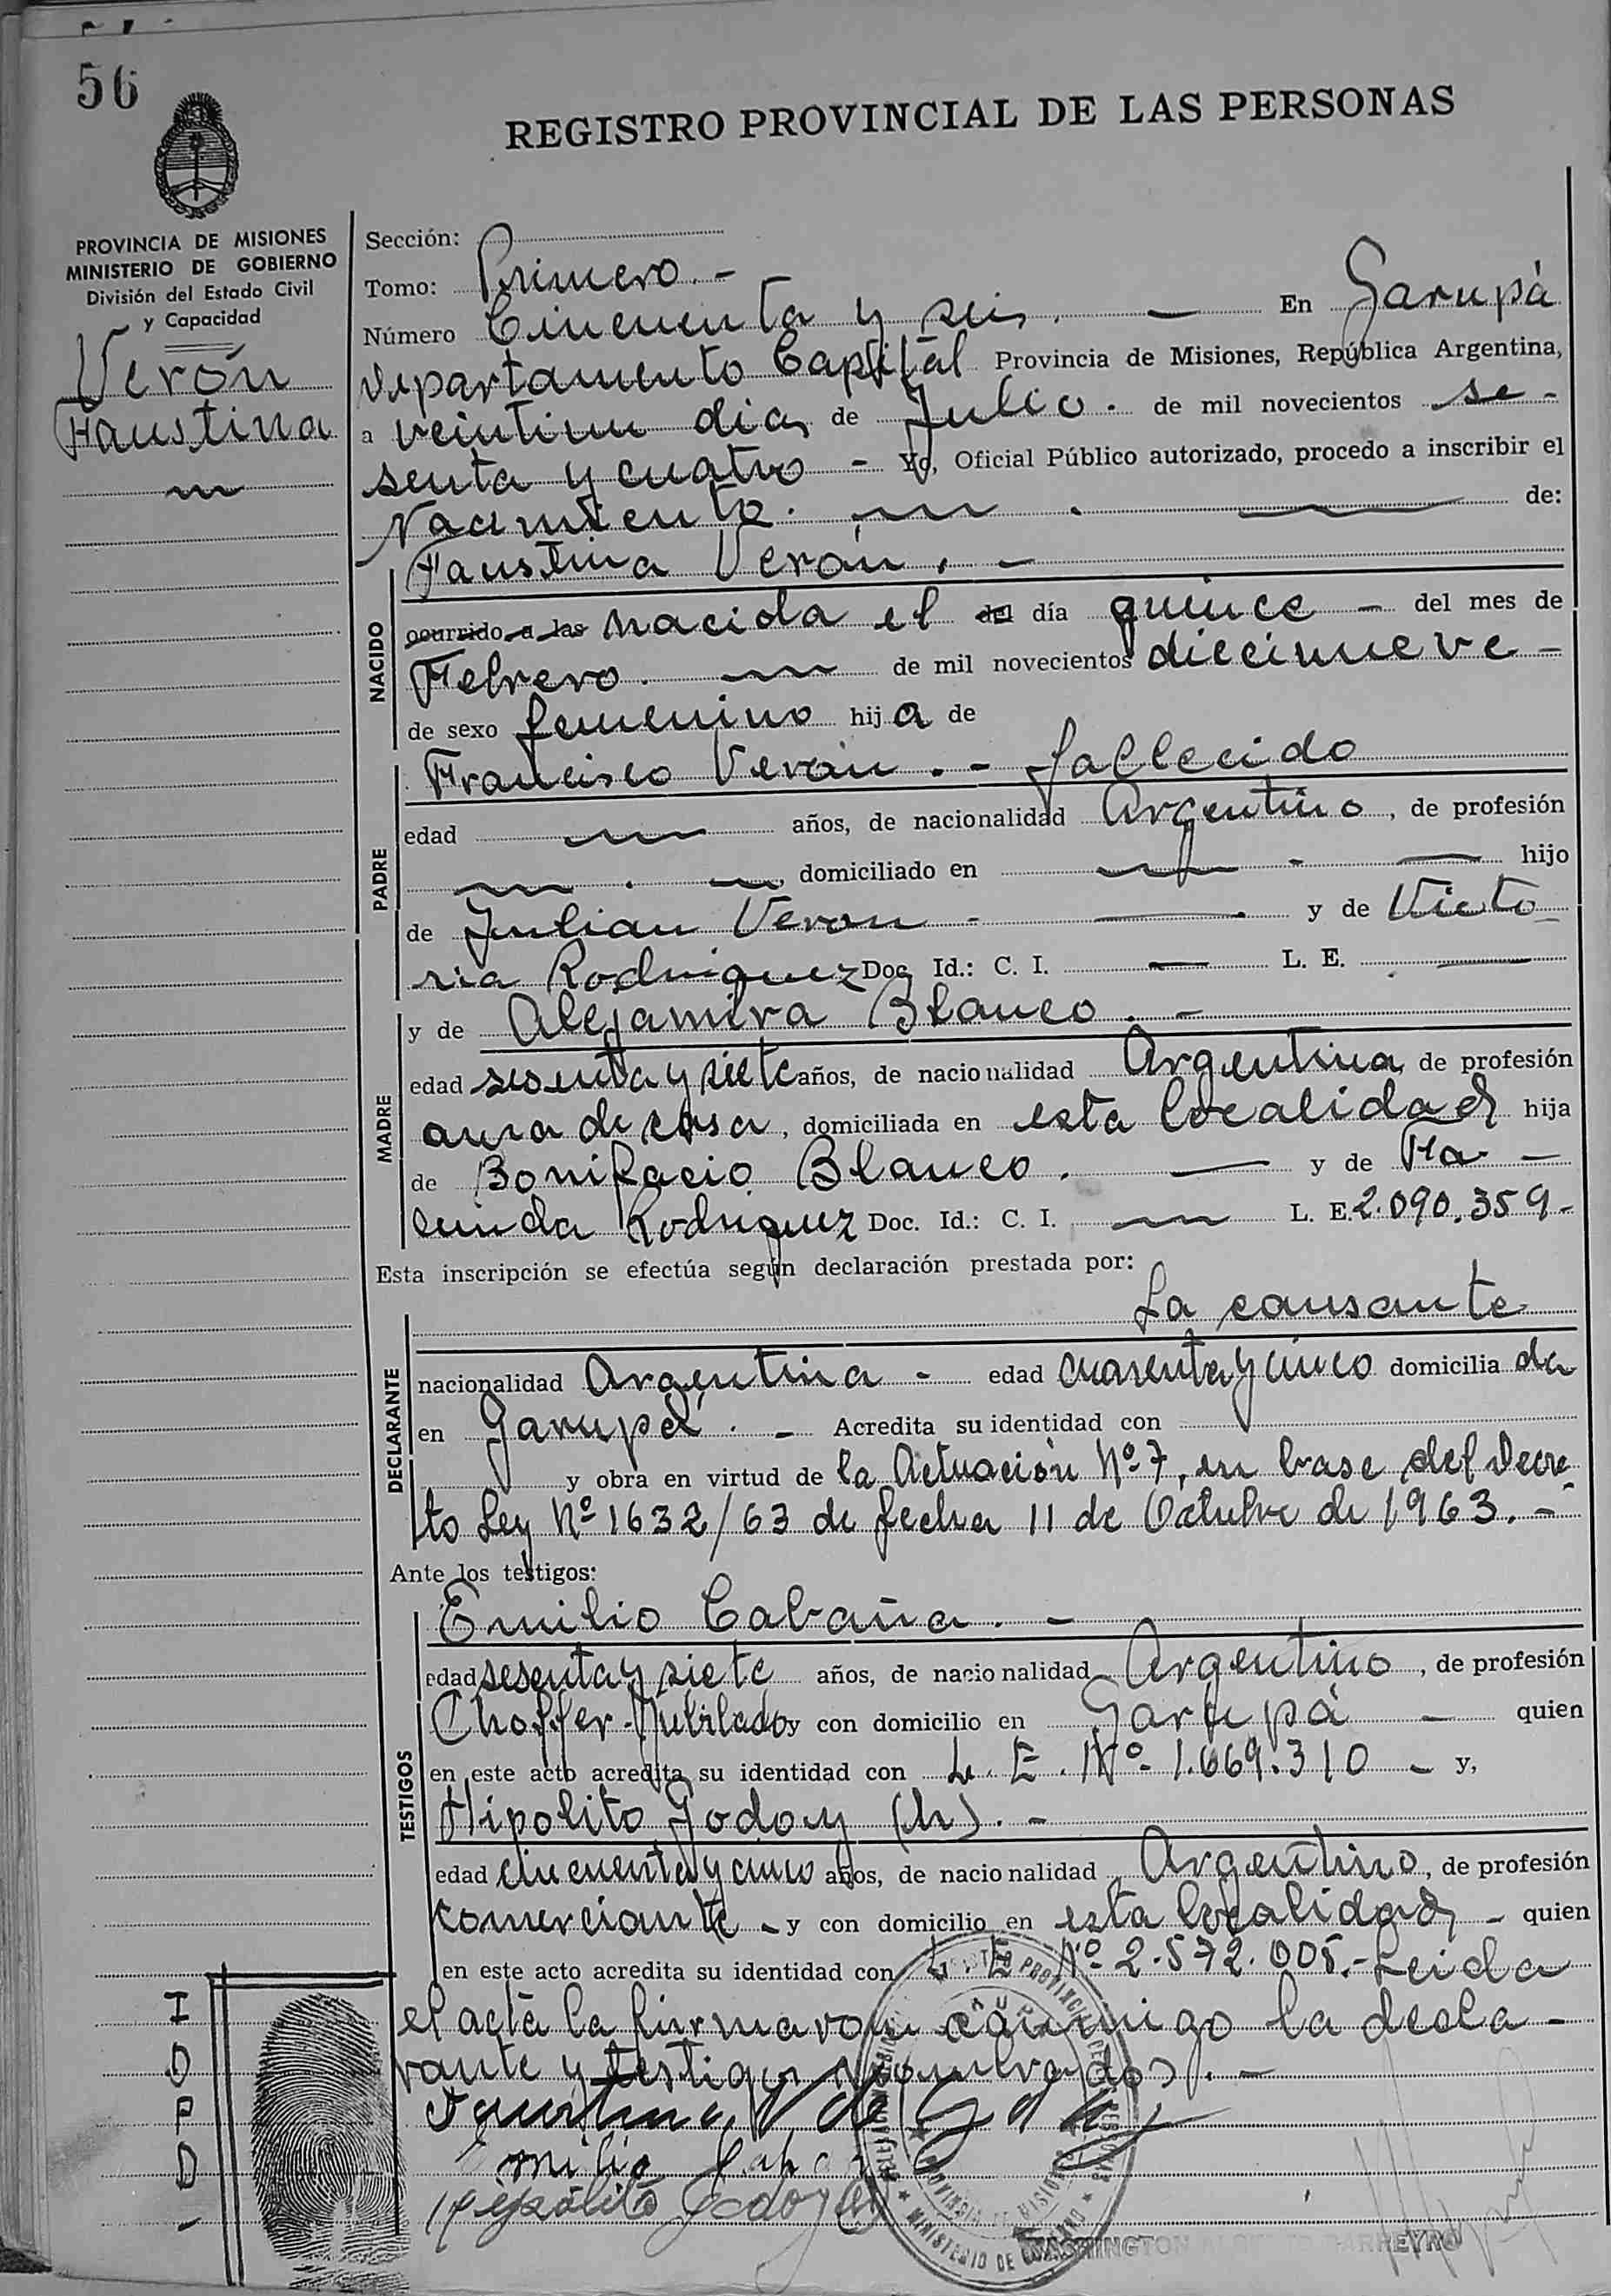 56
REGISTRO PROVINCIAL DE LAS PERSONAS
PROVINCIA DE MISIONES
MINISTERIO DE GOBIERNO
División del Estado Civil
y Capacidad
Verón
Faustina
Sección:
Tomo: Primero.-
Número Cincuenta y seis. — En Garupá
Departamento Capital Provincia de Misiones, República Argentina,
a veintiun dias de Julio. de mil novecientos se-
senta y cuatro - Yo, Oficial Público autorizado, procedo a inscribir el
Nacimiento. — de:
Faustina Verón. -
NACIDO
ocurrido a las nacida el del día quince - del mes de
Febrero. — de mil novecientos diecinueve -
de sexo femenino hija de
PADRE
Francisco Verón. - fallecido
edad — años, de nacionalidad Argentino, de profesión
— . —, domiciliado en — - — hijo
de Julian Veron - — y de Victo
ria Rodriguez Doc. Id.: C. I. — L. E. —
MADRE
y de Alejamira Blanco. -
edad sesenta y siete años, de nacionalidad Argentina, de profesión
ama de casa, domiciliada en esta localidad hija
de Bonifacio Blanco. — y de
Rodriguez Doc. Id.: C. I. — L. E. 2.090.359-
Esta inscripción se efectúa según declaración prestada por:
DECLARANTE
La causante
nacionalidad Argentina - edad cuarenta y cinco domicilia da
en Garupá. - Acredita su identidad con
y obra en virtud de la Actuación Nº 7, en base del Decre
to Ley Nº 1632/63 de fecha 11 de Octubre de 1963. -
Ante los testigos:
TESTIGOS
Emilio Cabaña. -
edad sesenta y siete años, de nacionalidad Argentino, de profesión
Choffer Jubilado y con domicilio en Garupá - quien
en este acto acredita su identidad con L. E. Nº 1.669.310 - y,
Hipolito Godoy (h). -
edad cincuenta y cinco años, de nacionalidad Argentino, de profesión
comerciante - y con domicilio en esta localidad - quien
en este acto acredita su identidad con L. E. Nº 2.572.005.- Leida
el acta la firmaron conmigo la decla-
rante y testigos nombrados. -
I
O
P
D
-
Faustina V de Godoy
Emilio
Hipólito Godoy
MINISTERIO DE GOBIERNO
WASHINGTON BARREYRO